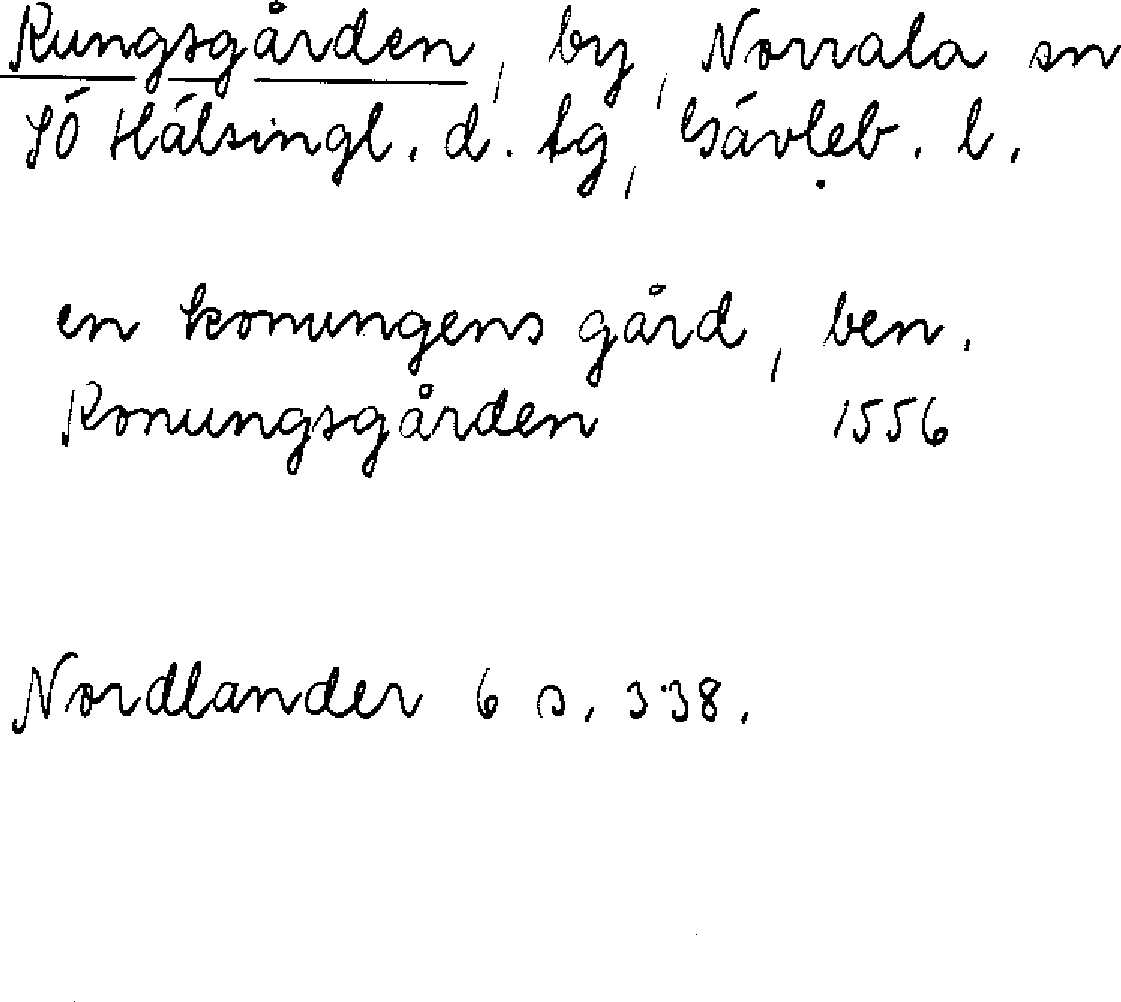 Kungsgården, by, Norrala sn
SÖ Hälsingl. d. tg, Gävleb. l.
en konungens gård, ben.
Konungsgården 1556
Nordlander 6 s. 338.